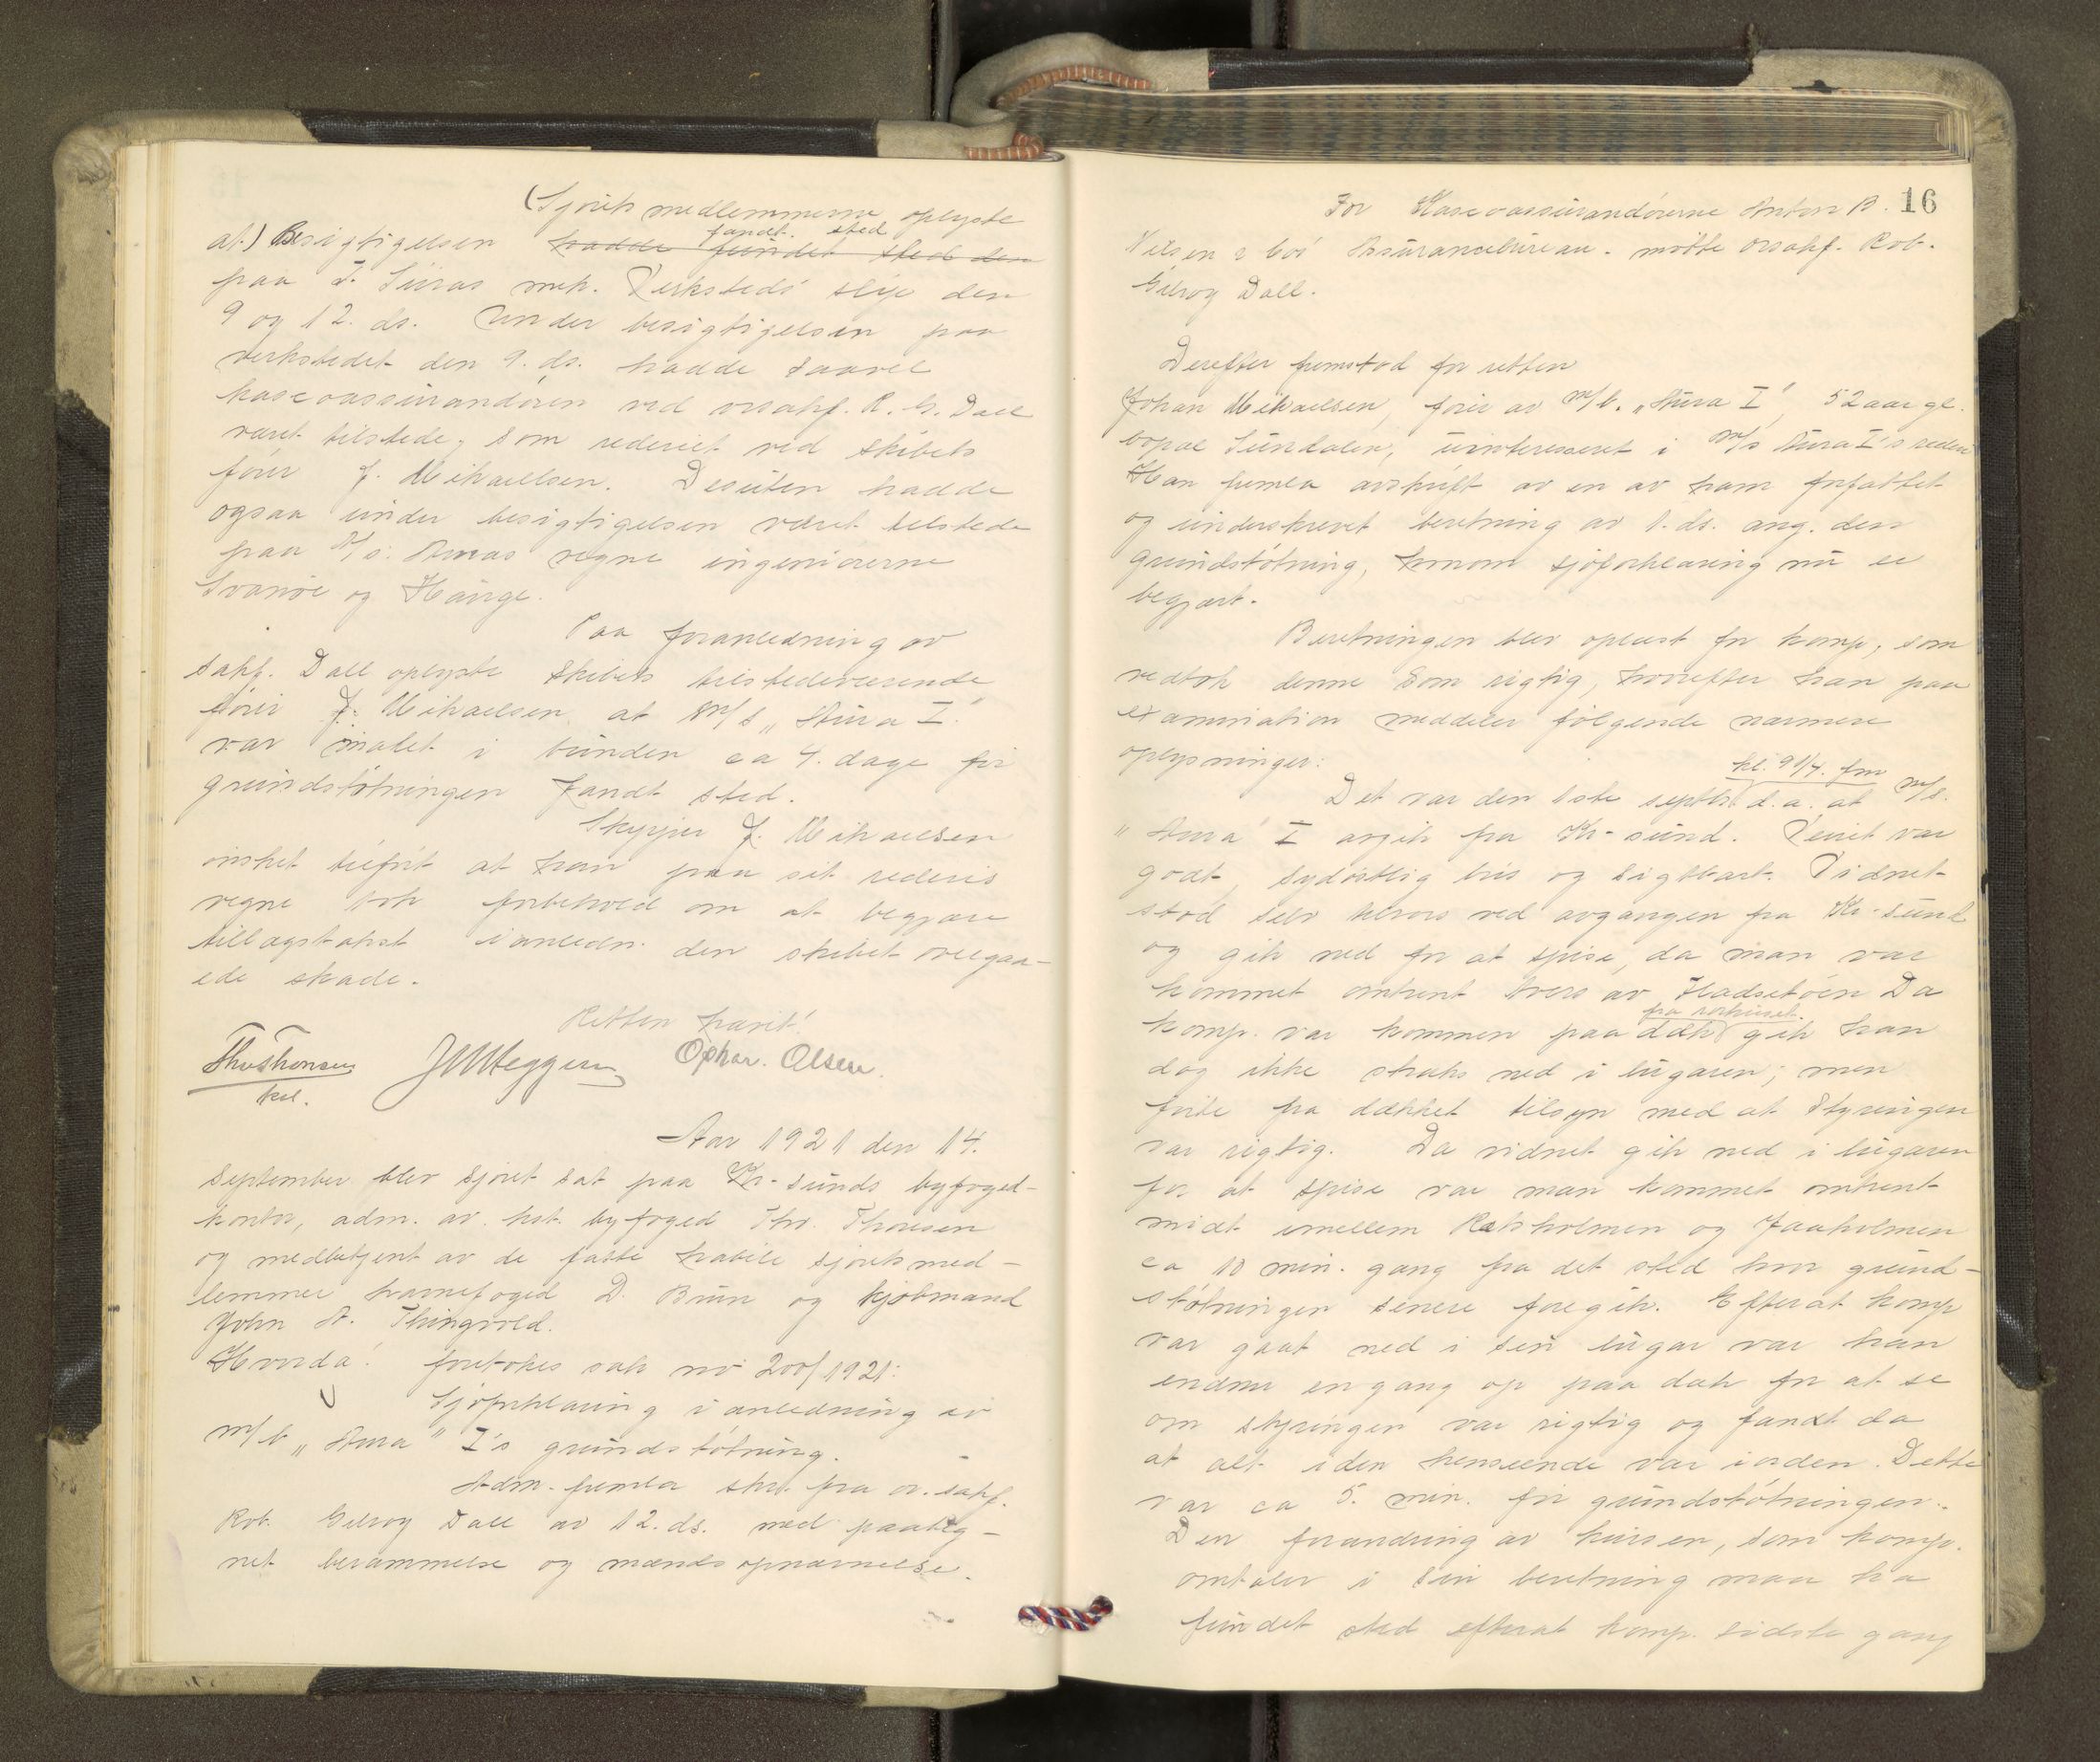 (Sjøretsmedlemmerne oplyste
at) Besigtigelsen hadde fundet sted den fandt sted
paa J. Sturas mek. Verksteds slip den
9 og 12. ds. Under besigtigelsen paa
verkstedet den 9. ds. hadde saavel
kascoassurandøren ved orsakf. R. G. Dall
været tilstede, som rederiet ved skibets
fører J. Mikaelsen. Desuten hadde
ogsaa under besigtigelsen været tilstede
paa M/s. Auras vegne ingeniørerne
Svanøe og Hauge.
Paa foranledning av
sakf. Dall oplyste skibets tilstedeværende
fører J. Mikaelsen at M/s „Aura I"
var malet i bunden ca 4. dage før
grundstøtningen fandt sted.
Skipper J. Mikaelsen
ønsket tilført at han paa sit rederis
vegne tok forbehold om at begjære
tillægstakst i anledn. den skibet overgaa-
ede skade.
Retten hævet!
Thv Thoresen JM Meggen Oskar. Olsen.
kst.
Aar 1921 den 14.
september blev sjøret sat paa Kr-sunds byfoged-
kontor, adm. av kst. byfoged Thv. Thoresen
og medbetjent av de faste habile sjøretsmed-
lemmer havnefoged D. Brun og kjøbmand
John A. Thingvold.
Hvorda! foretokes sak nr 200/1921:
Sjøforklaring i anledning av
m/b „Aura" I's grundstøtning.
Adm. fremla skr. fra or. sakf.
Rob. Gilroy Dall av 12. ds. med paateg-
net berammelse og mandsopnævnelse.
16
For Kascoassurandørerne Anton B.
Nilsen & Co's Assurancebureau. møtte orsakf. Rob.
Gilroy Dall.
Derefter fremstod for retten
Johan Mikaelsen, fører av M/b. „Aura I", 52 aar gl.
bopæl Sundalen, uinteresseret i M/s Aura I's rederi
Han fremla avskrift av en av ham forfattet
og underskrevet beretning av 1. ds. ang. den
grundstøtning, hvorom sjøforklaring nu er
begjært.
Beretningen blev oplæst for komp, som
vedtok denne som rigtig, hvorefter han paa
examination meddeler følgende nærmere
oplysninger:
kl. 9 1/4. fm
Det var den 1ste septbr d.a. at m/s.
„Aura" I avgik fra Kr-sund. Veiret var
godt, sydøstlig bris og sigtbart. Vidnet
stod selv tilrors ved avgangen fra Kr-sund
og gik ned for at spise, da man var
kommet omtrent tvers av Hadsetøen Da
fra rorhuset.
komp. var kommen paa dæk gik han
dog ikke straks ned i lugaren; men
førte fra dækket tilsyn med at styringen
var rigtig. Da vidnet gik ned i lugaren
for at spise var man kommet omtrent
midt imellem Ratsholmen og Jaaholmen
ca 10 min. gang fra det sted hvor grund-
støtningen senere foregik. Efterat komp
var gaat ned i sin lugar var han
endnu engang op paa dæk for at se
om styringen var rigtig og fandt da
at alt i den henseende var i orden. Dette
var ca 5. min. før grundstøtningen.
Den forandring av kursen, som komp.
omtaler i sin beretning maa ha
fundet sted efterat komp. sidste gang